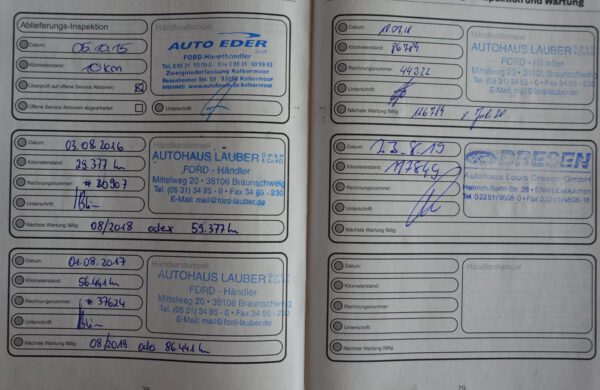 Ablieferungs-Inspektion
Händlerstempel
Datum: 05.10.15
Kilometerstand: 10 km
Überprüft auf offene Service Aktionen
Offene Service Aktionen abgearbeitet
Unterschrift:
AUTO EDER
FORD-Haupthändler
Zweigniederlassung Kolbermoor
Rosenheimer Str. 59 83059 Kolbermoor
Händlerstempel
Datum: 03.08.2016
Kilometerstand: 29.377 km
Rechnungsnummer: # 30907
Unterschrift:
Nächste Wartung fällig: 08/2018 oder 59.377 km
AUTOHAUS LAUBER GmbH & Co KG
FORD - Händler
Mittelweg 20 • 38106 Braunschweig
Tel. (05 31) 34 95 - 0 • Fax 34 95 - 230
E-Mail: mail@ford-lauber.de
Händlerstempel
Datum: 01.08.2017
Kilometerstand: 56.441 km
Rechnungsnummer: # 37624
Unterschrift:
Nächste Wartung fällig: 08/2019 oder 86.441 km
AUTOHAUS LAUBER
FORD - Händler
Mittelweg 20 • 38106 Braunschweig
Tel. (05 31) 34 95 - 0 • Fax 34 95 - 230
E-Mail: mail@ford-lauber.de
und Wartung
Datum:
Kilometerstand: 86789
Rechnungsnummer: 44322
Unterschrift:
Nächste Wartung fällig: 116789
AUTOHAUS LAUBER
FORD - Händler
Mittelweg 20 • 38106 Braunschweig
Tel. (05 31) 34 95 - 0 • Fax 34 95 - 230
E-Mail: mail@ford-lauber.de
Datum: 23.8.19
Kilometerstand: 117849
Rechnungsnummer:
Unterschrift:
Nächste Wartung fällig:
DRESEN
Autohaus Louis Dresen GmbH
Tel. 02251/9508-0 • Fax 02251/9508-18
Datum:
Kilometerstand:
Rechnungsnummer:
Unterschrift:
Nächste Wartung fällig:
Händlerstempel